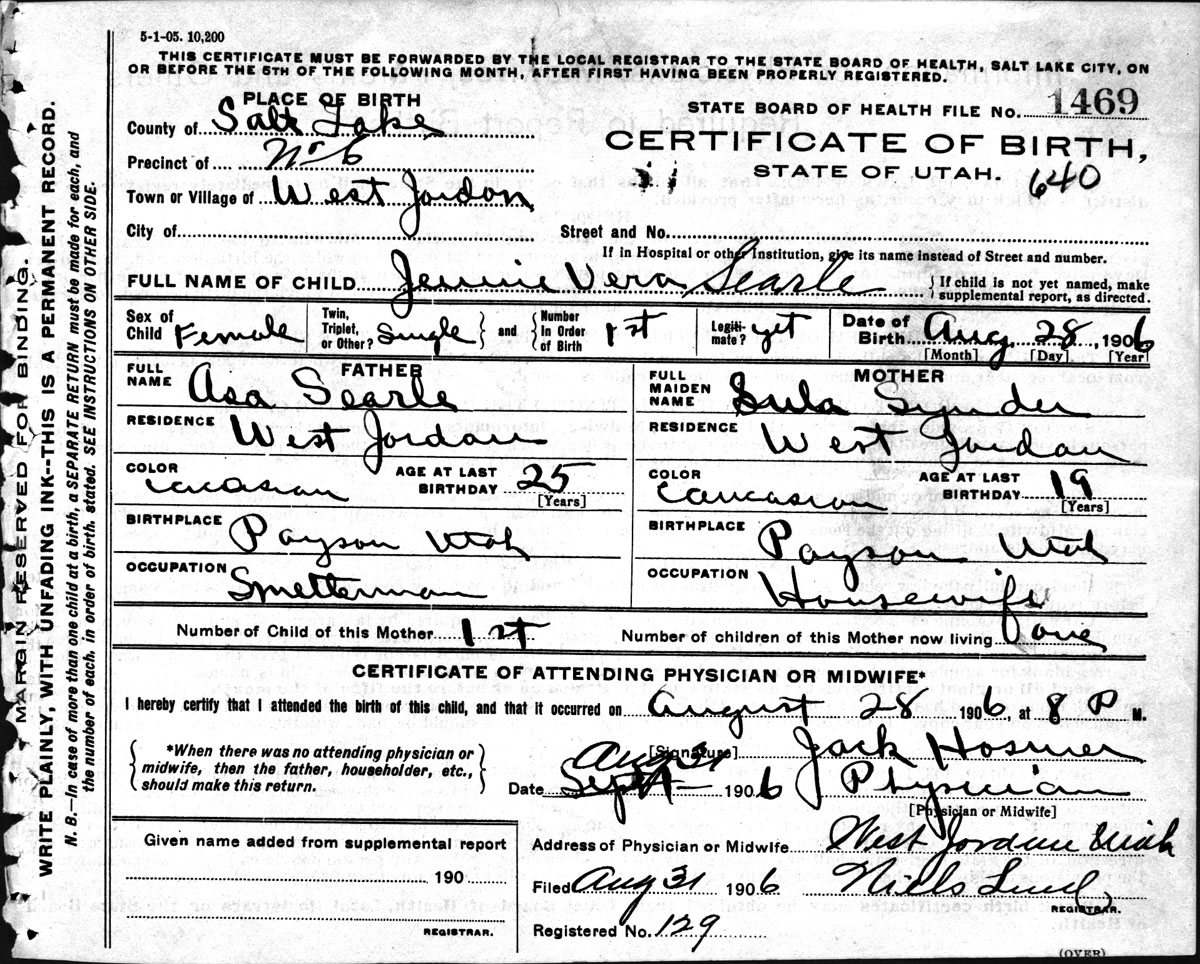 5-1-05. 10,200
THIS CERTIFICATE MUST BE FORWARDED BY THE LOCAL REGISTRAR TO THE STATE BOARD OF HEALTH, SALT LAKE CITY, ON
OR BEFORE THE 5TH OF THE FOLLOWING MONTH, AFTER FIRST HAVING BEEN PROPERLY REGISTERED.
PLACE OF BIRTH
STATE BOARD OF HEALTH FILE No. 1469
County of Salt Lake
CERTIFICATE OF BIRTH,
Precinct of No 6
STATE OF UTAH. 640
Town or Village of West Jordon
City of Street and No.
If in Hospital or other Institution, give its name instead of Street and number.
FULL NAME OF CHILD Jennie Vera Searle { If child is not yet named, make
supplemental report, as directed.
Sex of Child Female Twin, Triplet, or Other? Single } and { Number In Order of Birth 1st Legiti-mate? yet Date of Birth Aug 28, 1906
[Month] [Day] [Year]
FATHER MOTHER
FULL NAME Asa Searle FULL MAIDEN NAME Lula Synder
RESIDENCE West Jordan RESIDENCE West Jordan
COLOR Caucasian AGE AT LAST BIRTHDAY 25 [Years] COLOR Caucasian AGE AT LAST BIRTHDAY 19 [Years]
BIRTHPLACE Payson Utah BIRTHPLACE Payson Utah
OCCUPATION Smelterman OCCUPATION Housewife
Number of Child of this Mother 1st Number of children of this Mother now living one
CERTIFICATE OF ATTENDING PHYSICIAN OR MIDWIFE*
I hereby certify that I attended the birth of this child, and that it occurred on August 28 1906, at 8 P M.
{ *When there was no attending physician or
midwife, then the father, householder, etc.,
should make this return. }
[Signature] Jack Hosmer
Aug 31
Date Sept 1906 Physician
[Physician or Midwife]
Given name added from supplemental report
190
REGISTRAR.
Address of Physician or Midwife West Jordan Utah
Filed Aug 31 1906 Niels Lind
REGISTRAR.
Registered No. 129
(OVER)
MARGIN RESERVED FOR BINDING.
WRITE PLAINLY, WITH UNFADING INK--THIS IS A PERMANENT RECORD.
N. B.—In case of more than one child at a birth, a SEPARATE RETURN must be made for each, and
the number of each, in order of birth, stated. SEE INSTRUCTIONS ON OTHER SIDE.